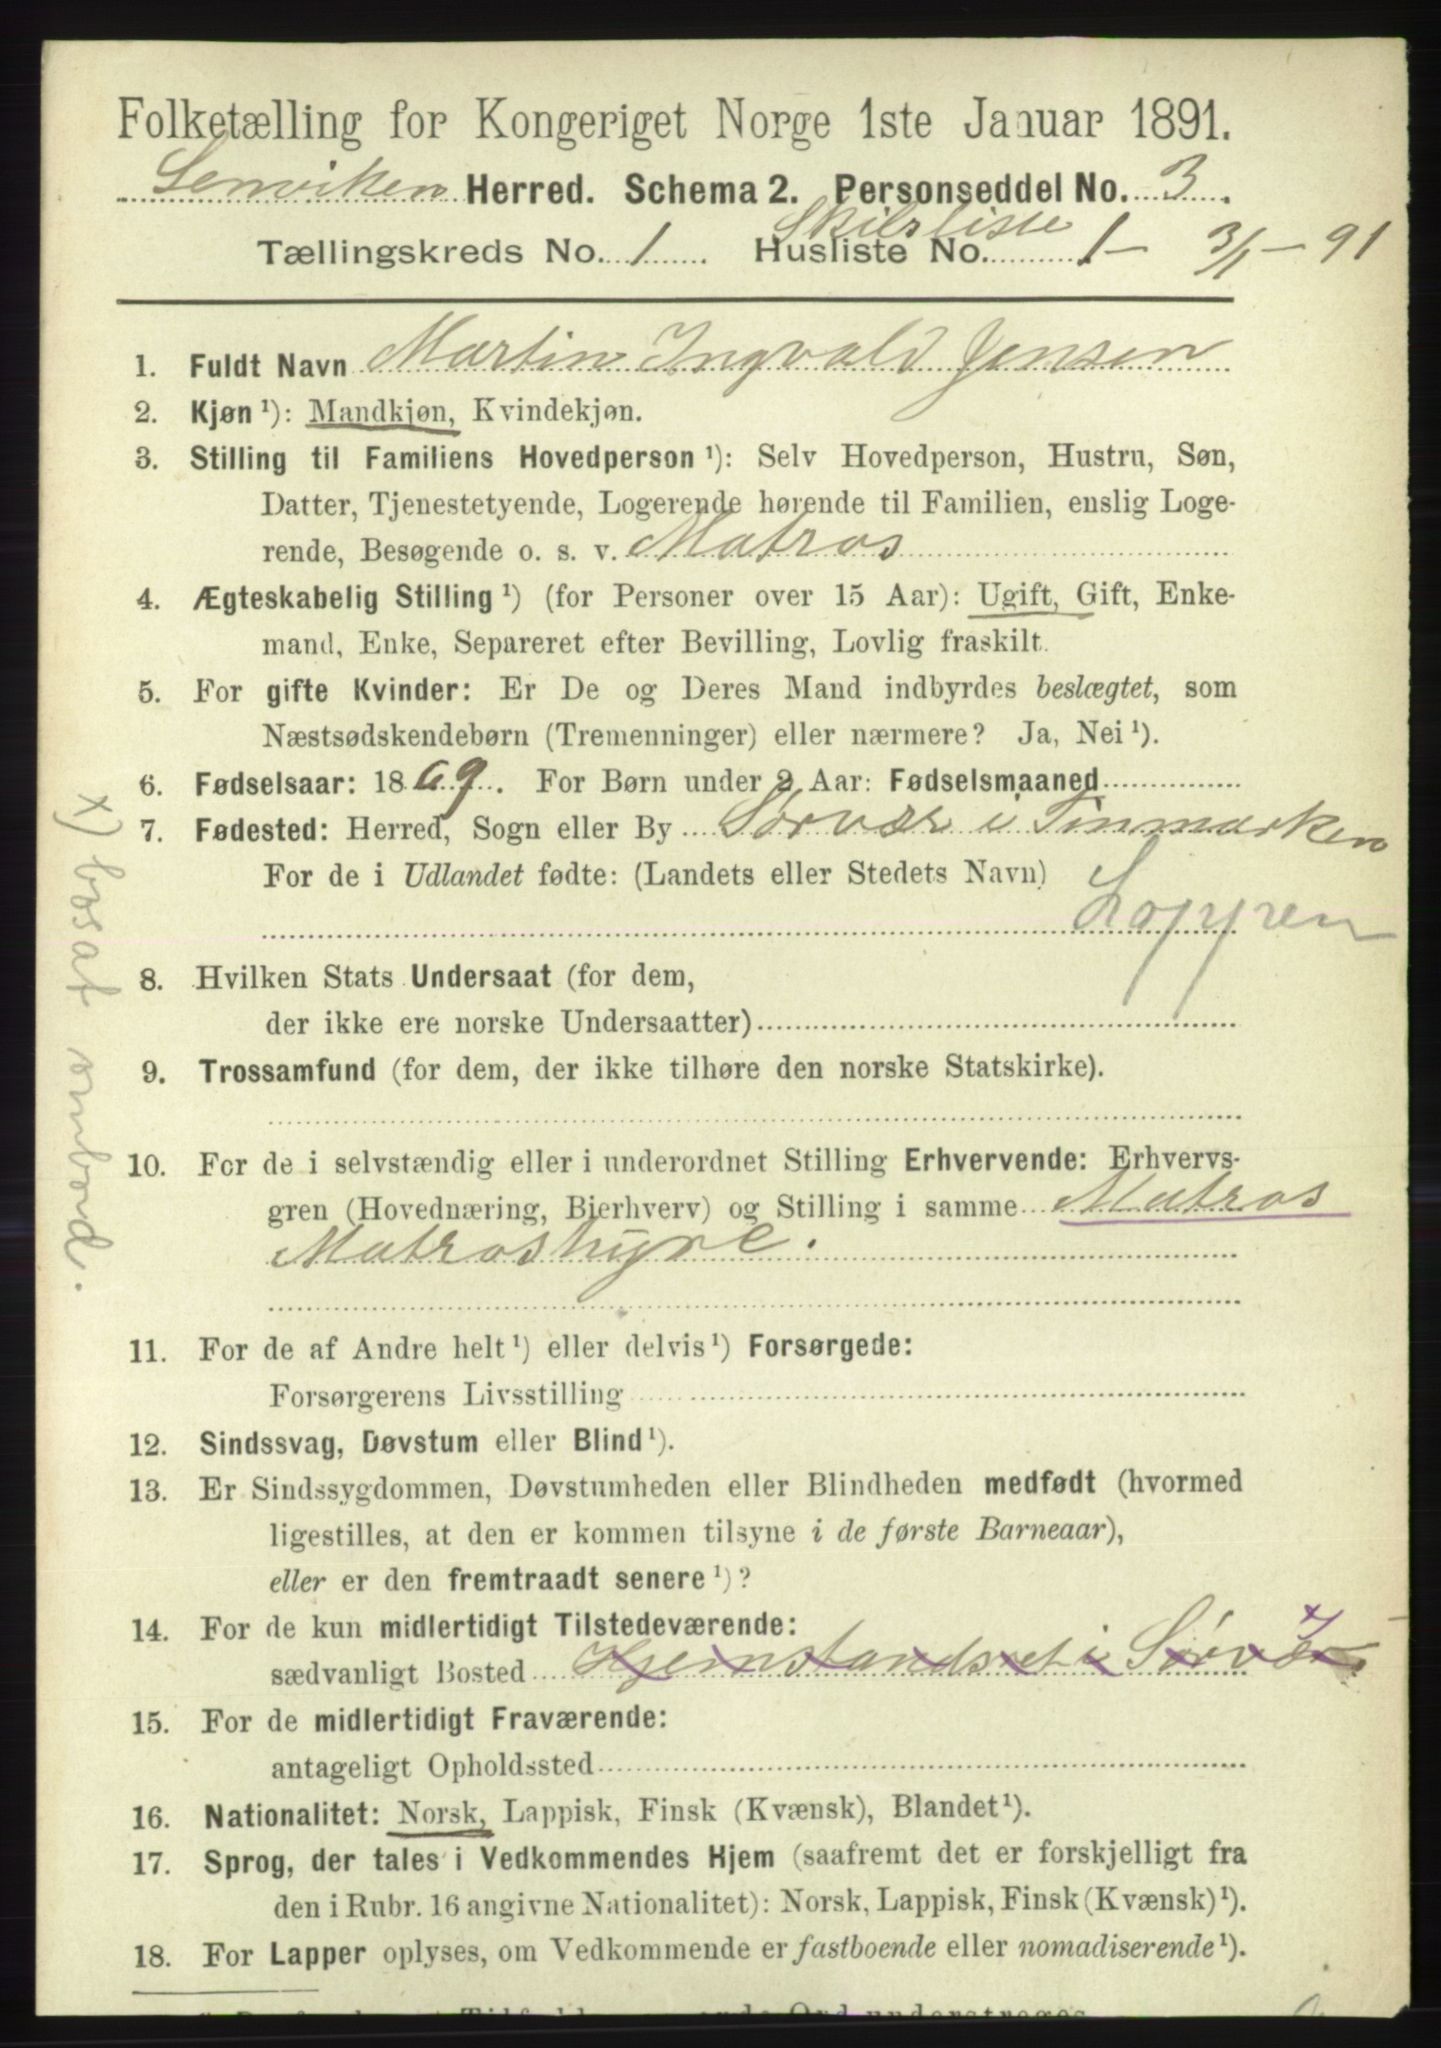 Folketælling for Kongeriget Norge 1ste Januar 1891.
Lenviken Herred. Schema 2. Personseddel No. 3.
Skibsliste
Tællingskreds No. 1 Husliste No. 1 - 3/1 - 91
1. Fuldt Navn Martin Ingvald Jensen
2. Kjøn ¹): Mandkjøn, Kvindekjøn.
3. Stilling til Familiens Hovedperson ¹): Selv Hovedperson, Hustru, Søn,
Datter, Tjenestetyende, Logerende hørende til Familien, enslig Loge-
rende, Besøgende o. s. v. Matros
4. Ægteskabelig Stilling ¹) (for Personer over 15 Aar): Ugift, Gift, Enke-
mand, Enke, Separeret efter Bevilling, Lovlig fraskilt.
5. For gifte Kvinder: Er De og Deres Mand indbyrdes beslægtet, som
Næstsødskendebørn (Tremenninger) eller nærmere? Ja, Nei ¹).
6. Fødselsaar: 1869. For Børn under 2 Aar: Fødselsmaaned
7. Fødested: Herred, Sogn eller By Sørvær i Finmarken
For de i Udlandet fødte: (Landets eller Stedets Navn)
Loppen
8. Hvilken Stats Undersaat (for dem,
der ikke ere norske Undersaatter)
9. Trossamfund (for dem, der ikke tilhøre den norske Statskirke).
10. For de i selvstændig eller i underordnet Stilling Erhvervende: Erhvervs-
gren (Hovednæring, Bierhverv) og Stilling i samme Matros
Matroshyre.
11. For de af Andre helt ¹) eller delvis ¹) Forsørgede:
Forsørgerens Livsstilling
12. Sindssvag, Døvstum eller Blind ¹).
13. Er Sindssygdommen, Døvstumheden eller Blindheden medfødt (hvormed
ligestilles, at den er kommen tilsyne i de første Barneaar),
eller er den fremtraadt senere ¹)?
14. For de kun midlertidigt Tilstedeværende:
sædvanligt Bosted Hjemstandsret i Sørvær
15. For de midlertidigt Fraværende:
antageligt Opholdssted
16. Nationalitet: Norsk, Lappisk, Finsk (Kvænsk), Blandet ¹).
17. Sprog, der tales i Vedkommendes Hjem (saafremt det er forskjelligt fra
den i Rubr. 16 angivne Nationalitet): Norsk, Lappisk, Finsk (Kvænsk) ¹).
18. For Lapper oplyses, om Vedkommende er fastboende eller nomadiserende ¹).
x) bosat ombord.